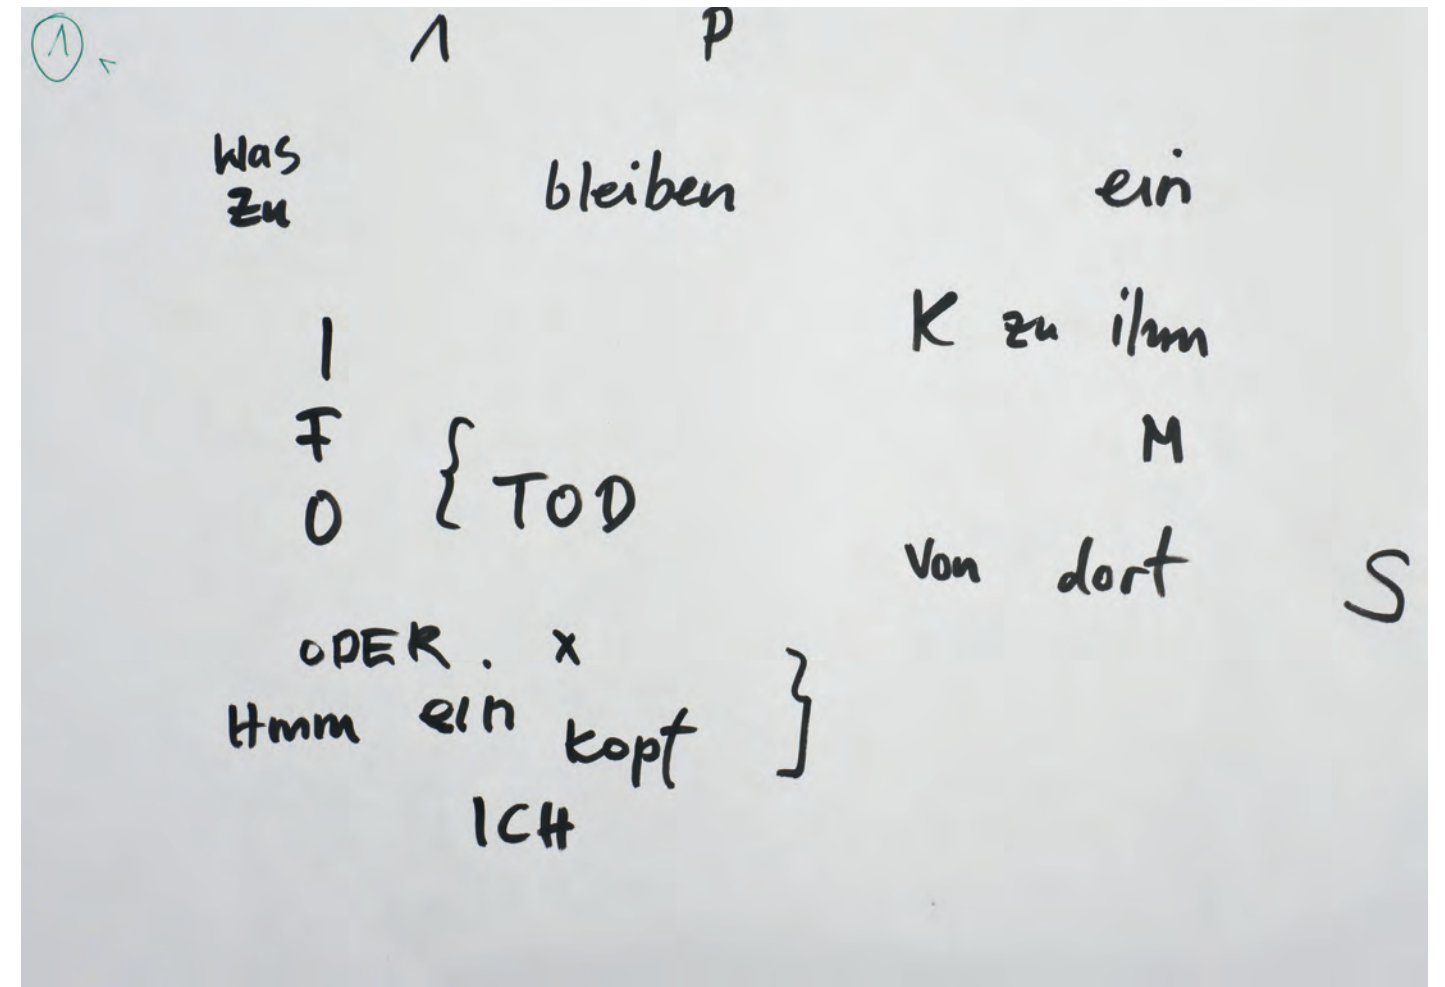 1.
1 P
Was
zu bleiben ein
I K zu ihm
F M
O { TOD
von dort S
ODER. x
Hmm ein Kopf }
ICH